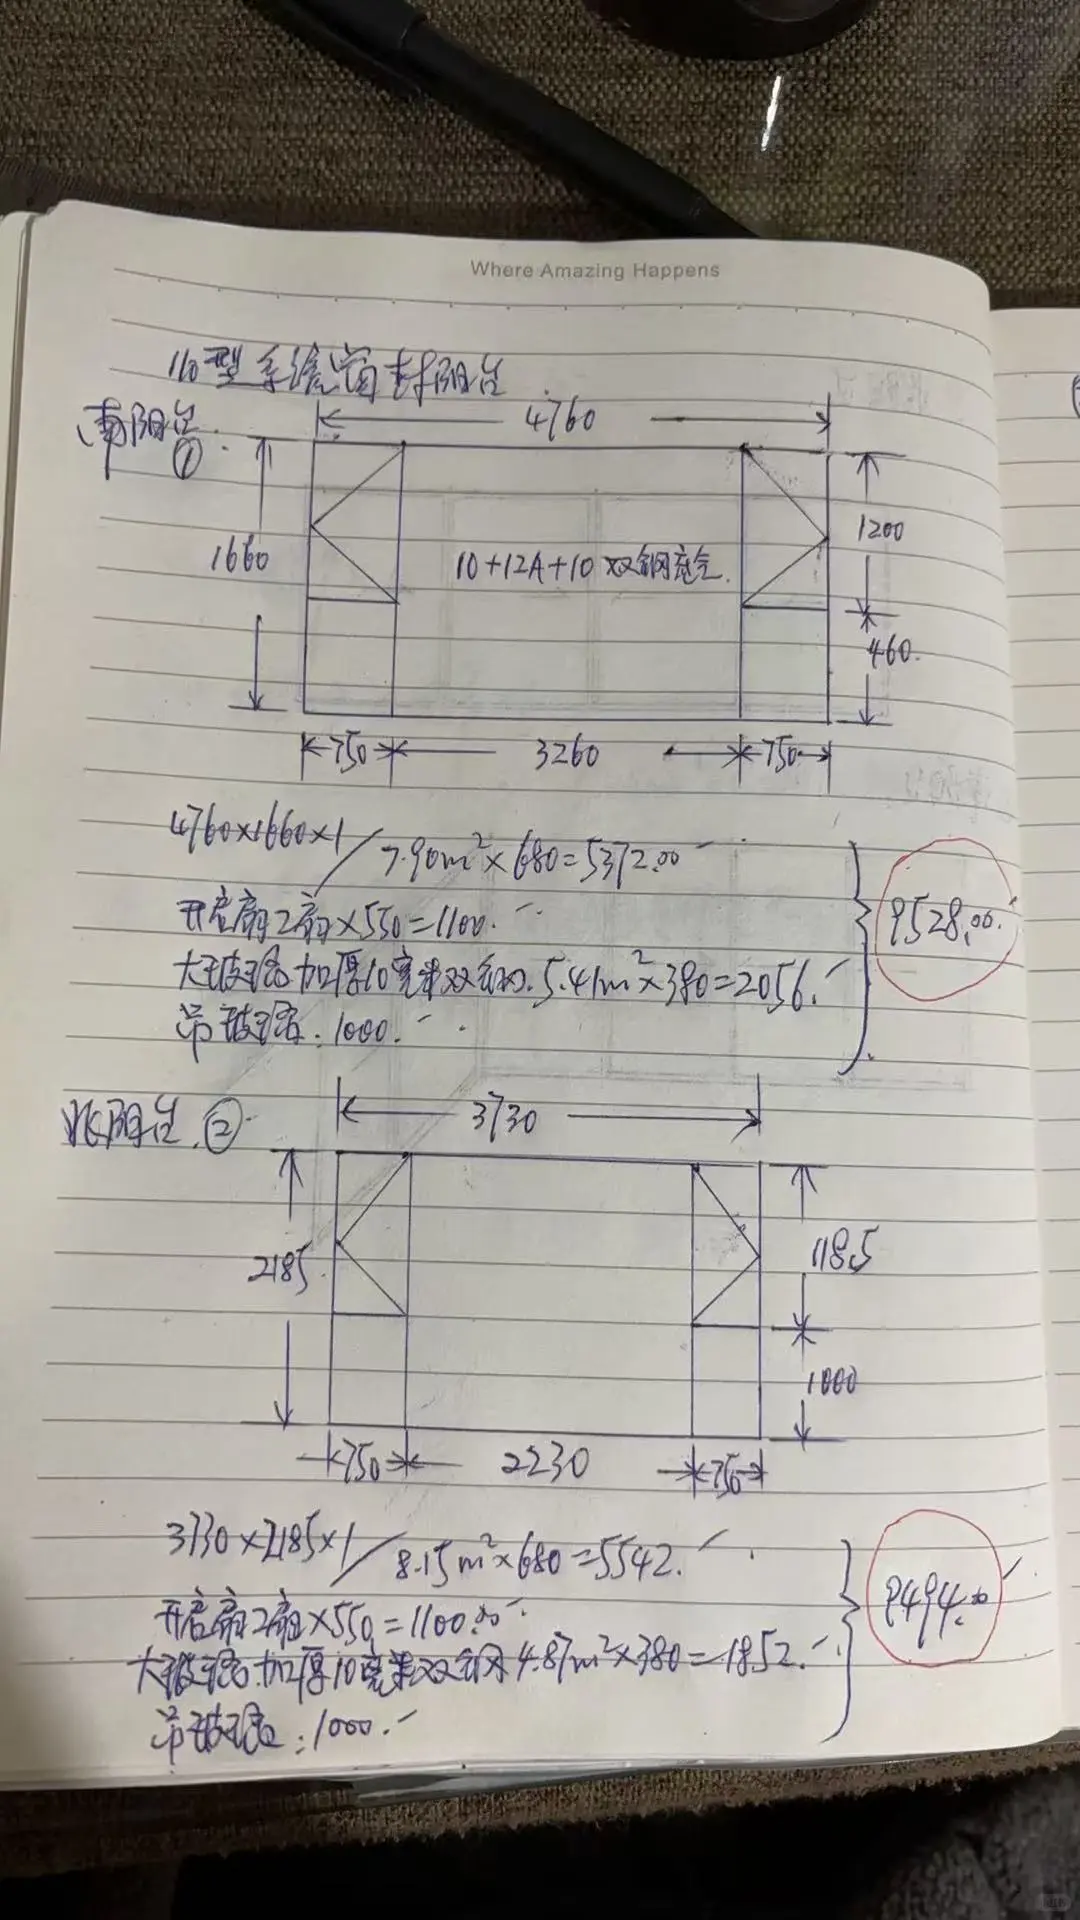 Where Amazing Happens
110型系统窗封阳台
南阳台①.
4760
1660
10+12A+10双钢充气.
1200
460.
750
3260
750
4760×1660×1/7.90m²×680=5372.00
开启扇2扇×550=1100.
大玻璃加厚10毫米双钢.5.41m²×380=2056.
吊玻璃:1000.
9528.00.
北阳台.②
3730
2185
1185
1000
750
2230
750
3730×2185×1/8.15m²×680=5542.
开启扇2扇×550=1100.00
大玻璃.加厚10毫米双钢4.87m²×380=1852.
吊玻璃:1000.
9494.00